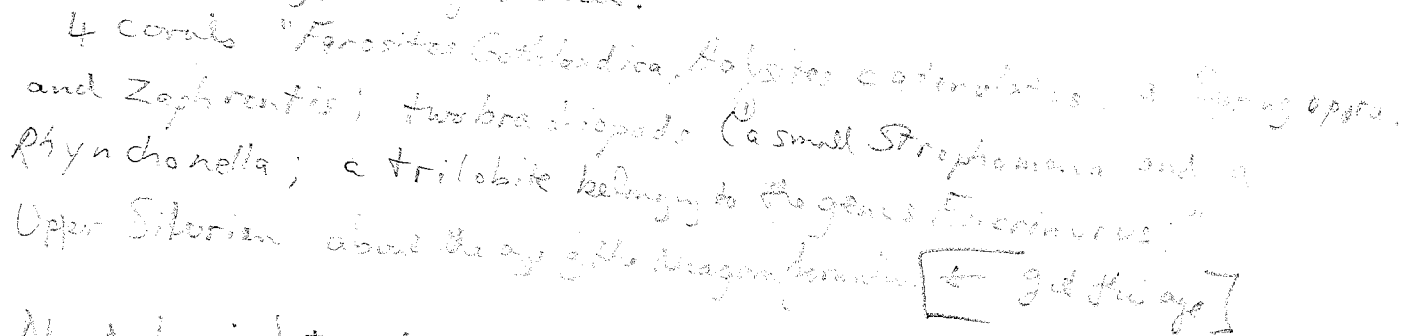 4 corals "Favosites Gothlandica, Halysites catenulatus, a Syringopora.
and Zaphrentis; two brachiopods (a small Strophomena and a
Rhynchonella; a trilobite belonging to the genus Encrinurus."
Upper Silurian about the age of the Niagara formation [ get this age]